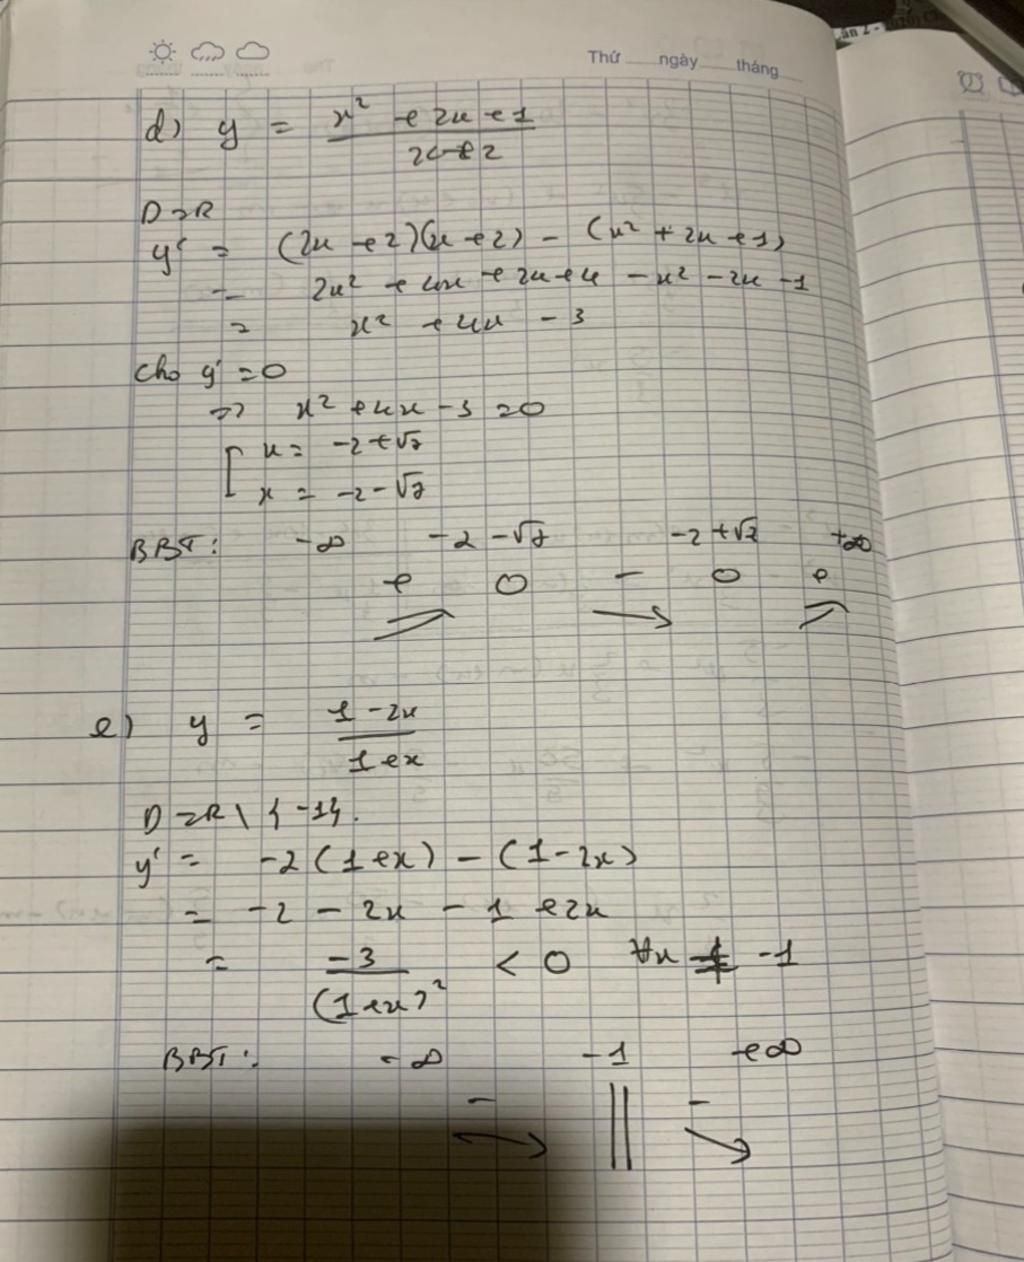 Thứ ngày tháng
d) y = (x² + 2x + 1) / (x + 2)
D = R
y' = (2x + 2)(x + 2) - (x² + 2x + 1)
= 2x² + 4x + 2x + 4 - x² - 2x - 1
= x² + 4x - 3
Cho y' = 0
=> x² + 4x - 3 = 0
[ x = -2 + √7
x = -2 - √7
BBT: -∞ -2 - √7 -2 + √7 +∞
+ 0 - 0 +
e) y = (1 - 2x) / (1 + x)
D = R \ {-1}.
y' = -2(1 + x) - (1 - 2x)
= -2 - 2x - 1 + 2x
= -3 / (1 + x)² < 0 ∀x ≠ -1
BBT: -∞ -1 +∞
- || -